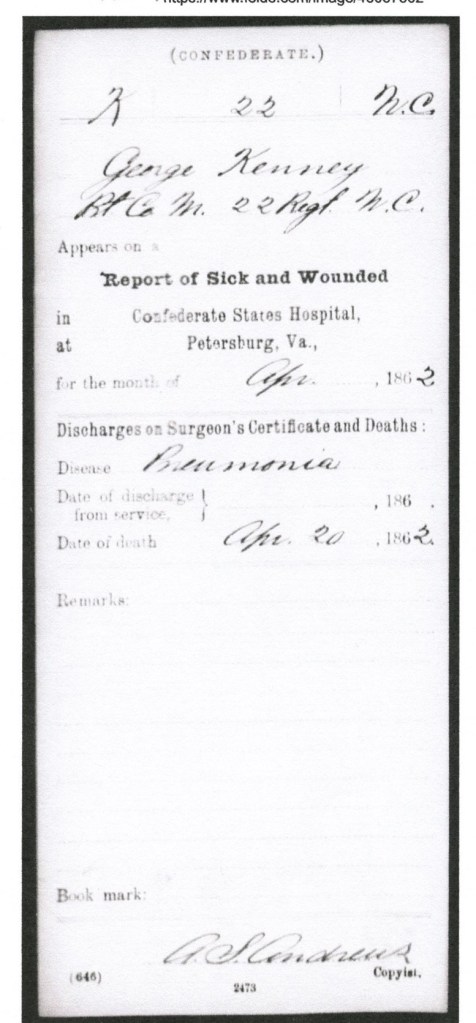 (CONFEDERATE.)
K 22 N.C.
George Kenney
Pt Co M. 22 Regt. N.C.
Appears on a
Report of Sick and Wounded
in Confederate States Hospital,
at Petersburg, Va.,
for the month of Apr. , 1862
Discharges on Surgeon's Certificate and Deaths:
Disease Pneumonia
Date of discharge } , 186 .
from service,
Date of death Apr. 20 , 1862.
Remarks:
Book mark:
A. S. Andrews
(646) Copyist.
2473